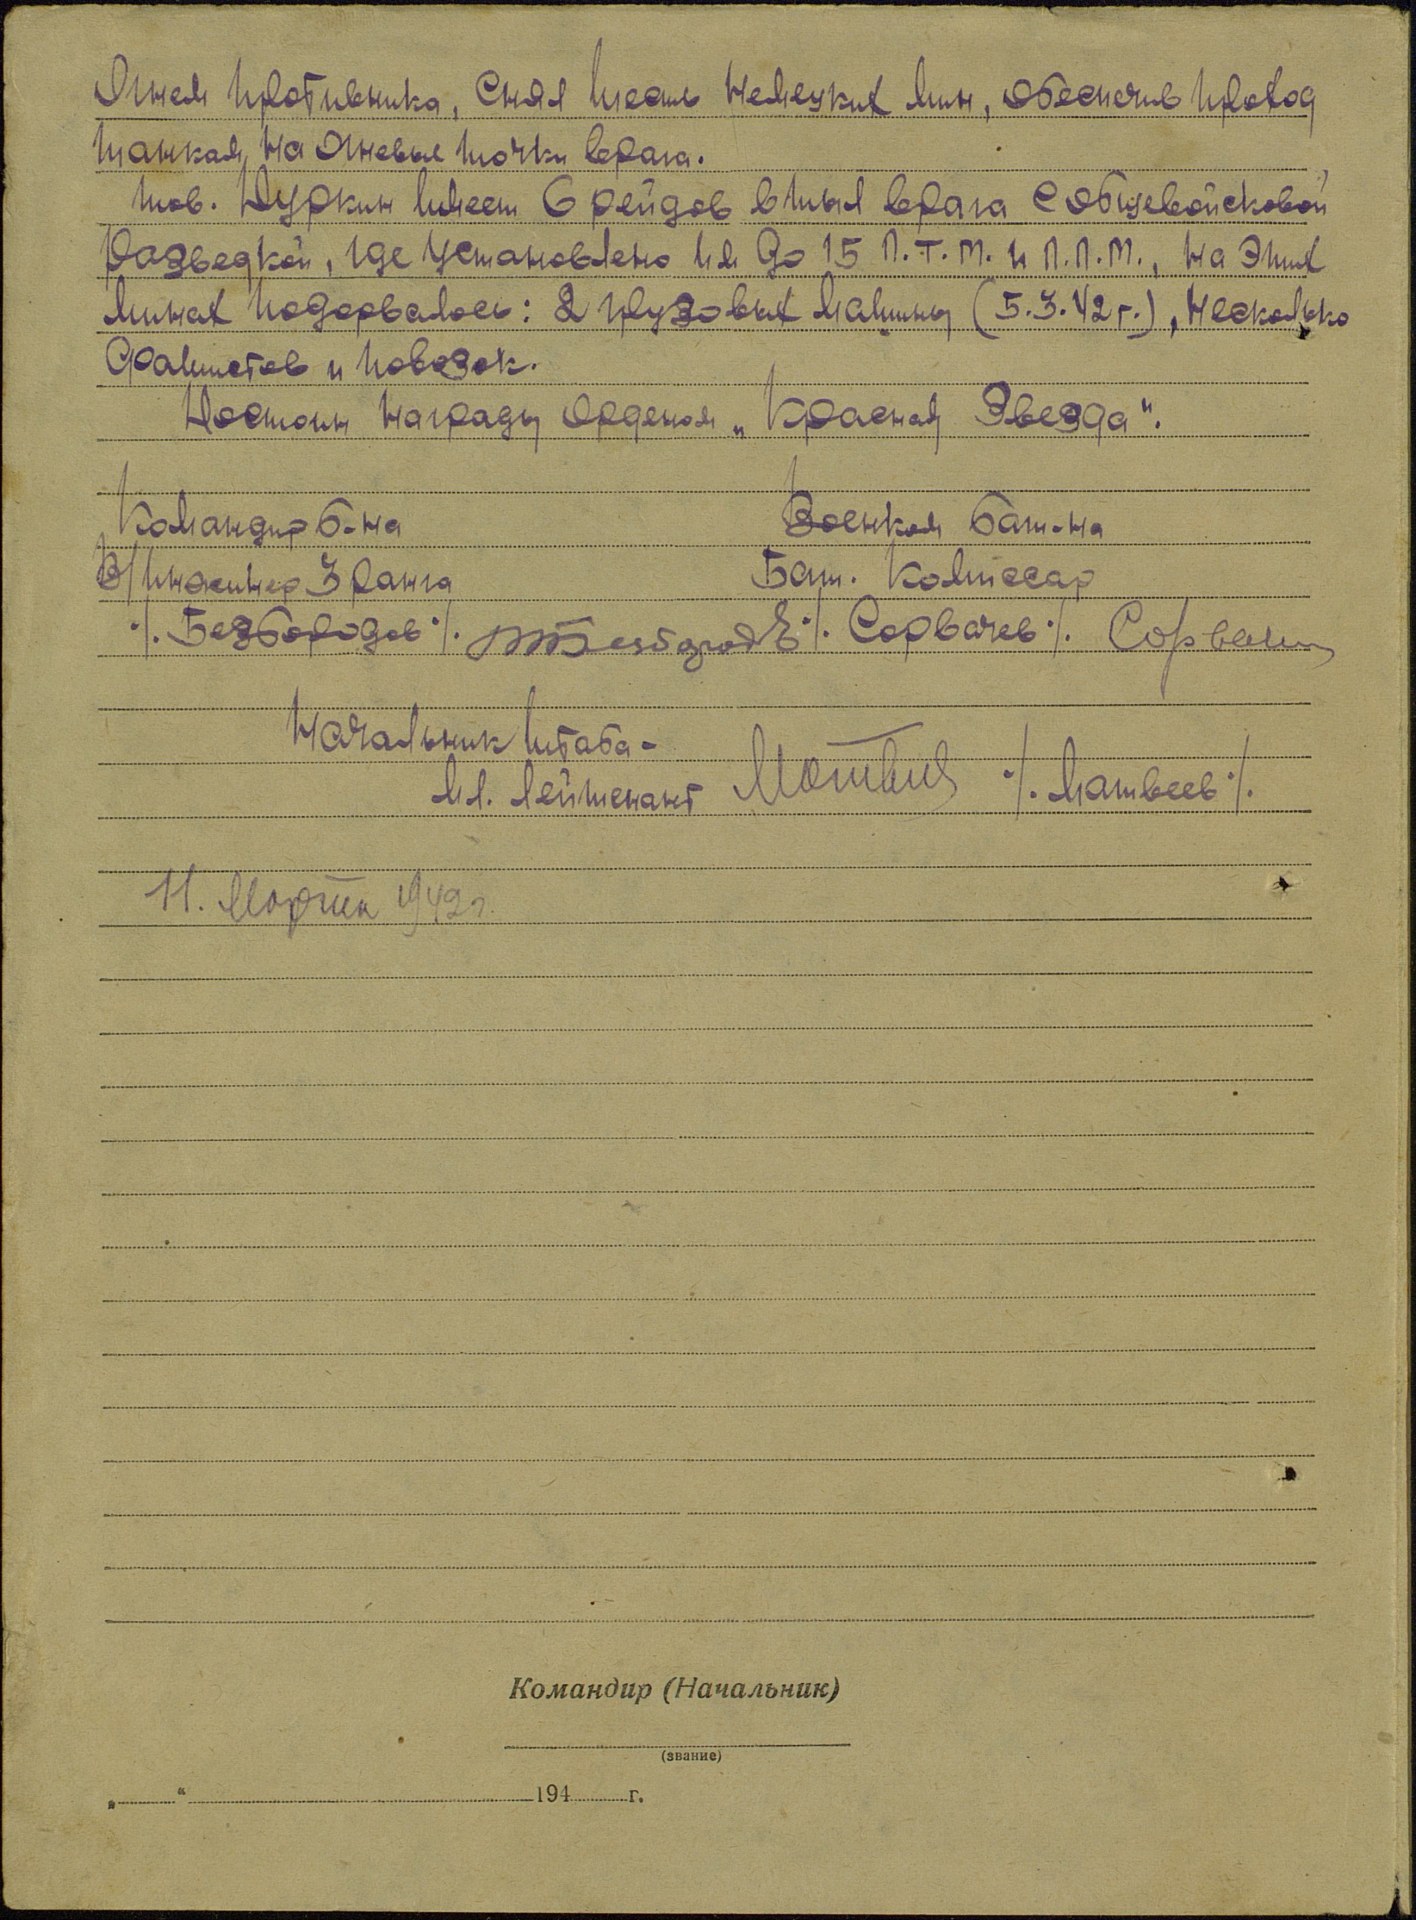 Огнем противника, снял шесть немецких мин, обеспечив проход
танкам на огневые точки врага.
тов. Дуркин имеет 6 рейдов в тыл врага с общевойсковой
разведкой, где установлено им до 15 П.Т.М. и П.П.М., на этих
минах подорвалось: 2 грузовых машины (5.3.42 г.), несколько
фашистов и повозок.
Достоин награды орденом „Красная Звезда".
Командир б-на
Военком бат-на
В/инженер 3 ранга
Бат. Комиссар
·/. Безбородов ·/.
·/. Сорвачев ·/.
Начальник штаба -
мл. лейтенант
·/. Матвеев ·/.
11. Марта 1942 г.
Командир (Начальник)
(звание)
„ “ 194 г.